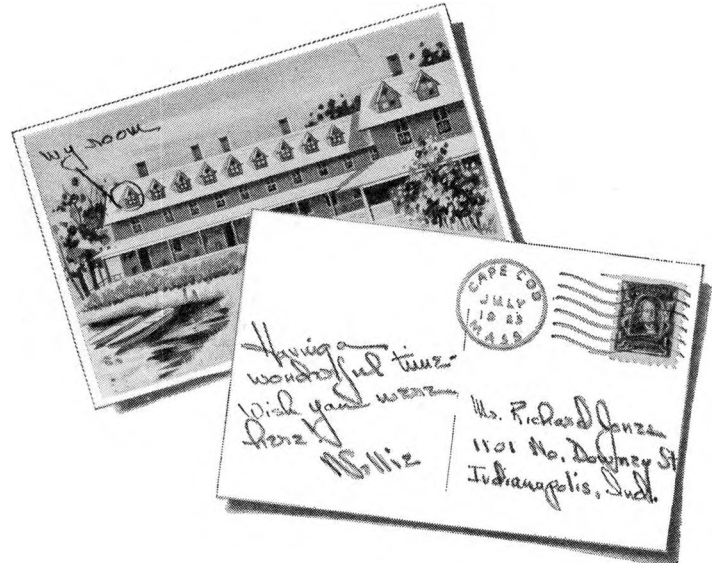 my room
CAPE COD
JULY
19 23
MASS
Having a
wonderful time-
Wish you were
here!
Nellie
Mr. Richard Jones
1101 No. Downey St
Indianapolis, Ind.